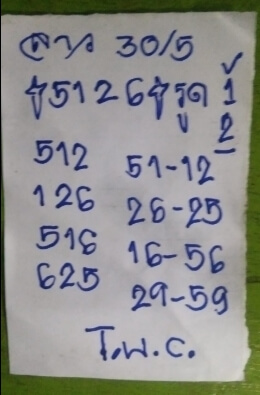 ลาว 30/5
ชู5126ชูรูด 1
2
512 51-12
126 26-25
516 16-56
625 29-59
T.พ.C.